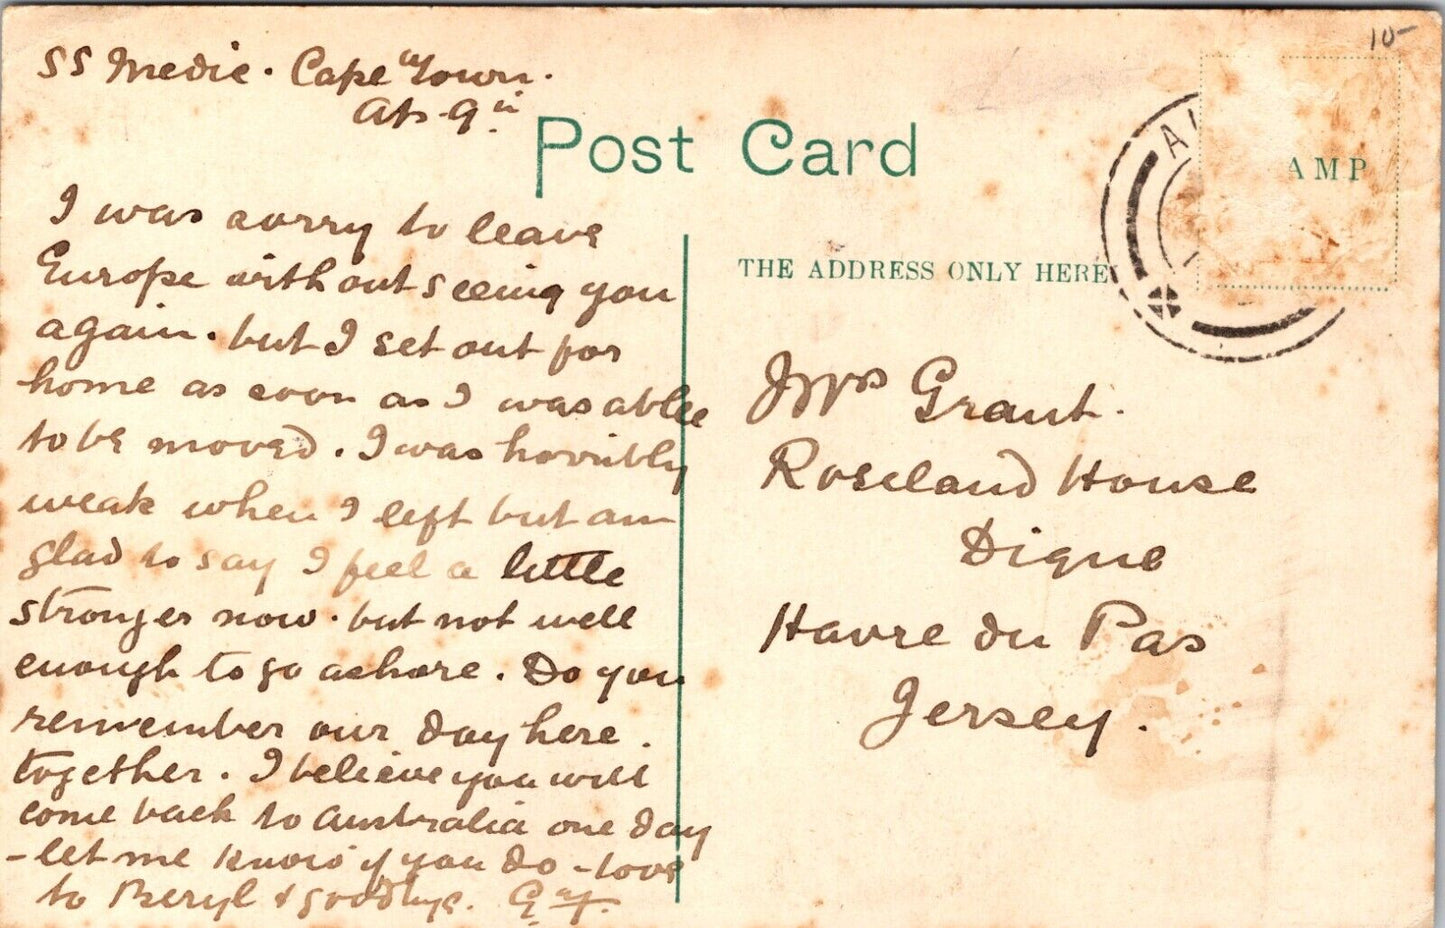 SS Medic. Cape Town.
9th
I was sorry to leave
Europe without seeing you
again. but I set out for
home as soon as I was able
to be moved. I was horribly
weak when I left but am
glad to say I feel a little
stronger now. but not well
enough to go ashore. Do you
remember our day here
together. I believe you will
come back to Australia one day
- let me know if you do - love
to Beryl & goodbye.
Post Card
THE ADDRESS ONLY HERE
AMP
10-
Mrs Grant.
Roseland House
Dique
Havre du Pas
Jersey.